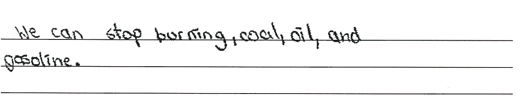 We can stop burning, coal, oil, and
gasoline.